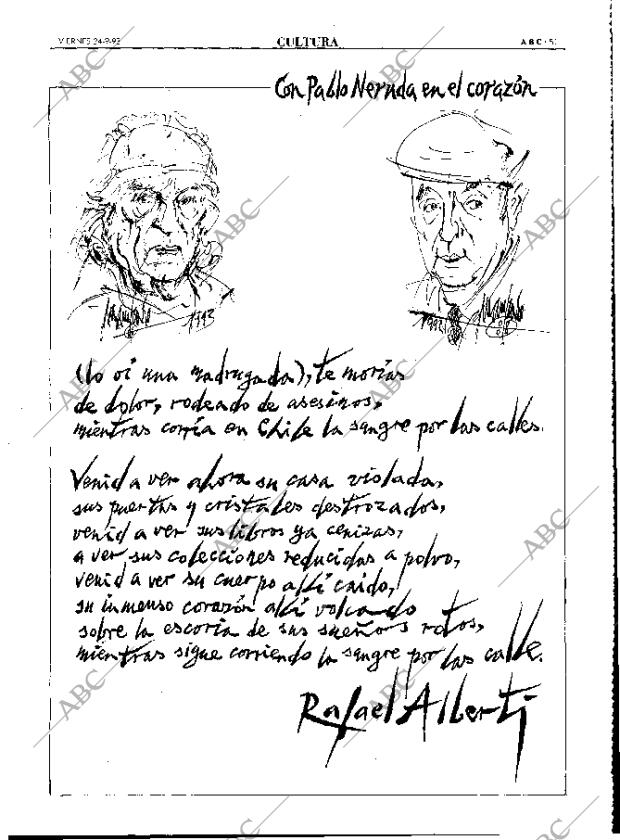 VIERNES 24-9-93
CULTURA
ABC
Con Pablo Neruda en el corazón
1993
1993
(lo oí una madrugada), te morías
de dolor, rodeado de asesinos,
mientras corría en Chile la sangre por las calles.
Venid a ver ahora su casa violada,
sus puertas y cristales destrozados,
venid a ver sus libros ya cenizas,
a ver sus colecciones reducidas a polvo,
venid a ver su cuerpo allí caído,
su inmenso corazón allí volcado
sobre la escoria de sus sueños rotos,
mientras sigue corriendo la sangre por las calle.
Rafael Alberti